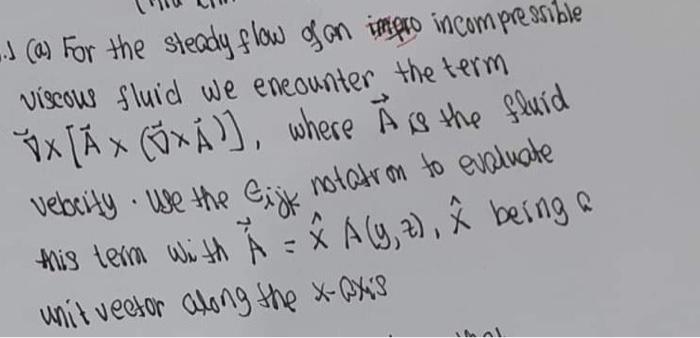 (a) For the steady flow of an impro incompressible
viscous fluid we encounter the term
∇⃗×[A⃗ × (∇⃗×A⃗)], where A⃗ is the fluid
velocity. Use the ϵijk notation to evaluate
this term with A⃗ = x̂ A(y,z), x̂ being a
unit vector along the x-axis